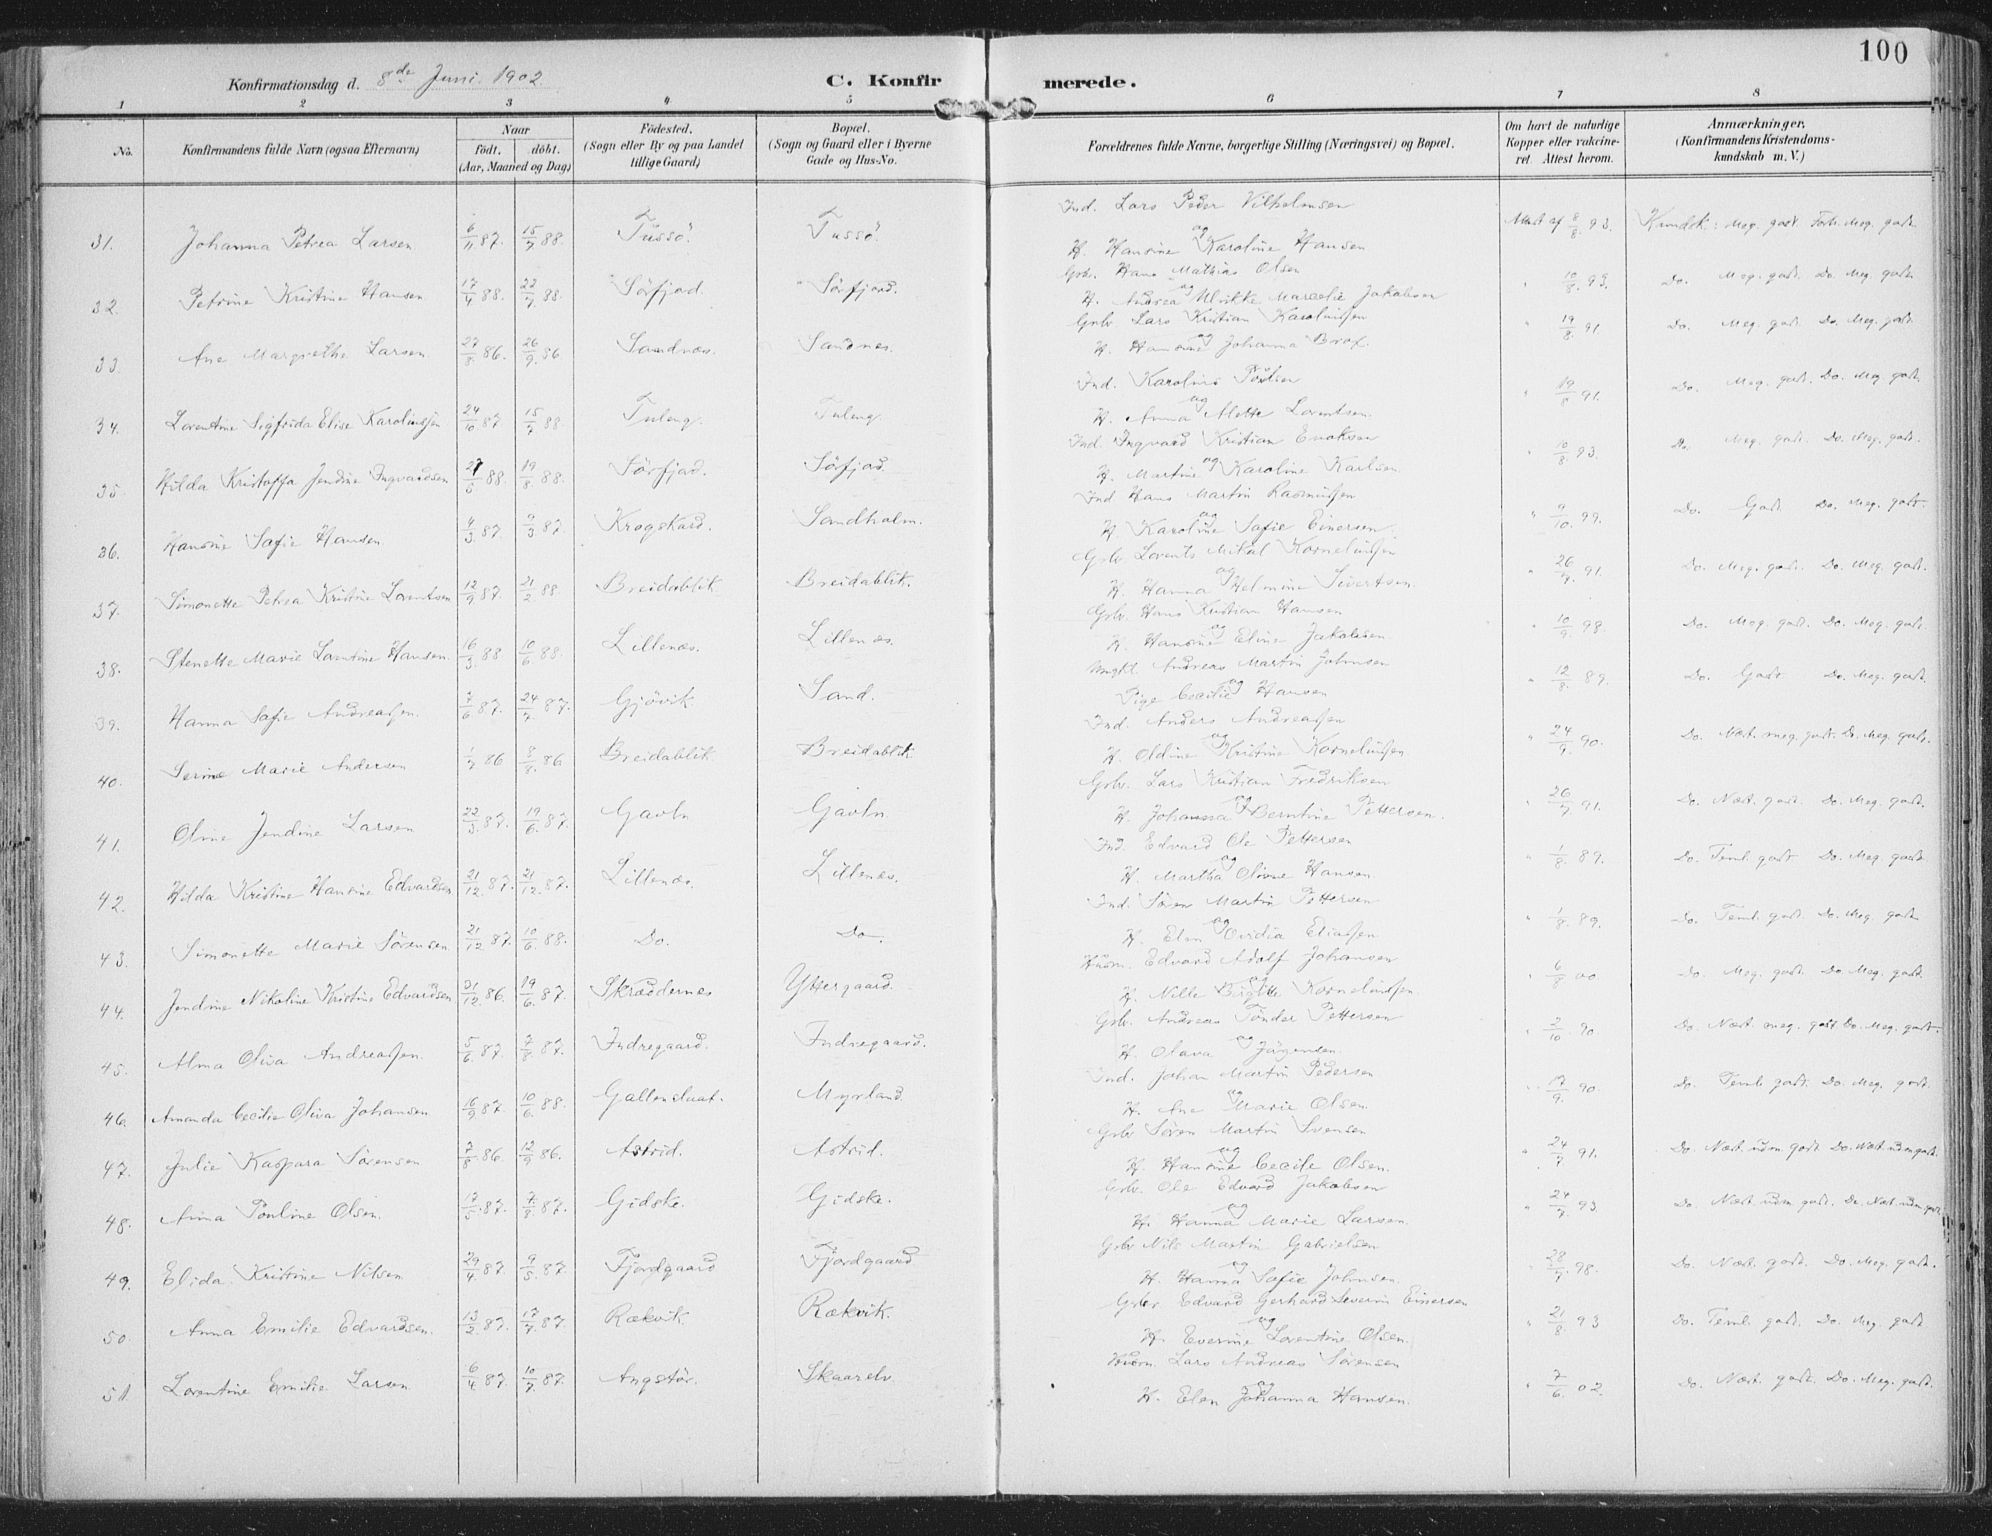 100
Konfirmationsdag d. 8de Juni 1902. C. Konfirmerede.
1 2 3 4 5 6 7 8
No. Konfirmandens fulde Navn (ogsaa Efternavn) Naar födt. döbt. (Aar, Maaned og Dag) Födested. (Sogn eller By og paa Landet tillige Gaard) Bopæl. (Sogn og Gaard eller i Byerne Gade og Hus-No. Forældrenes fulde Navne, borgerlige Stilling (Næringsvei) og Bopæl. Om havt de naturlige Kopper eller vakcineret. Attest herom. Anmærkninger. (Konfirmandens Kristendomskundskab m. V.)
Ind. Lars Peder Vilhelmsen
31. Johanna Petrea Larsen 6/11 87. 15/7 88. Tussö. Tussö. og H. Hansine Karoline Hansen Attest af 8/8 93. Kundsk: Meg. godt. Forh. Meg. godt.
Grbr. Hans Mathias Olsen
32. Petrine Kristine Hansen 17/4 88. 22/7 88. Sörfjord. Sörfjord. og H. Andrea Ulrikke Marcelie Jakobsen " 10/8 93. Do. Meg. godt. Do. Meg. godt.
Grbr. Lars Kristian Karolinssen
33. Ane Margrethe Larsen 27/8 86. 26/9 86 Sandnæs. Sandnes. og H. Hansine Johanna Brox. " 19/8 91 Do. Meg. godt. Do. Meg. godt.
Ind. Karolius Povlsen
34. Lorentine Sigfrida Elise Karolinssen 24/10 87 15/7 88. Tuleng. Tuleng. og H. Anna Mette Lorentsen. " 19/8 91. Do. Meg. godt. Do. Meg. godt.
Ind. Ingvard Kristian Enoksen
35. Hilda Kristoffa Jendine Ingvardsen 27/5 88. 19/8 88. Sörfjord. Söfjord. og H. Martine Karoline Karlsen. " 10/8 93. Do. Meg. godt. Do. Meg. godt.
Ind. Hans Martin Rasmussen
36. Hansine Safie Hansen 4/3 87. 9/3 87. Krogskard. Sandholm. og H. Karoline Safie Einersen. " 9/10 99. Do. Godt Do. Meg. godt.
Grbr. Lorents Mikal Kornelinssen
37. Simonette Petrea Kristine Lorentsen 12/9 87. 21/2 88. Breidablik. Breidablik. og H. Hanna Helmine Sivertsen. " 26/7 91 Do. Meg. godt. Do. Meg. godt.
Grbr. Hans Kristian Hansen
38. Stenette Marie Lorentine Hansen. 16/3 88 10/6 88. Lillenæs. Lillenæs. og H. Hansine Eline Jakobsen " 10/9 98. Do. Meg. godt. Do. Meg. godt.
Ungkl. Andreas Martin Johnsen
39. Hanna Safie Andreassen. 7/6 87. 24/7 87. Gjövik. Sand. og Pige Cecilie Hansen " 12/8 89. Do. Godt Do. Meg. godt.
Ind. Anders Andreassen
40. Serine Marie Andersen 1/7 86 8/8. 86 Breidablik. Breidablik og H. Oldine Kristine Kornelinssen " 24/9 90. Do. Næst. meg. godt. Do. Meg. godt.
Grbr. Lars Kristian Fredriksen
41. Oline Jendine Larsen 22/3 87. 19/6. 87. Gavln Gavln og H. Johanna Berntine Pettersen. " 26/7 91. Do. Næst. godt. Do. Meg. godt.
Ind. Edvard Ole Pettersen
42. Hilda Kristine Hansine Edvardsen 21/12. 87. 21/12. 87. Lillenæs. Lillenæs. og H. Martha Oline Hansen " 1/8. 89. Do. Teml. godt Do. Meg. godt.
Ind. Sören Martin Pettersen
43. Simonette Marie Sörensen 21/12 87. 10/6 88. Do. Do. og H. Elen Ovidia Eliassen " 1/8. 89. Do. Teml. godt. Do. Meg. godt.
Husm. Edvard Adolf Johansen
44. Jendine Nikoline Kristine Edvardsen 31/12. 86. 19/6. 87. Skræddernes Yttergaard. og H. Nille Birgitte Kornelinssen " 6/8 00 Do. Meg. godt. Do. Meg. godt.
Grbr. Andreas Tönder Pettersen
45. Alma Oliva Andreassen. 5/6 87. 7/8 87. Indregaard. Indregaard. og H. Olava Jörgensen. " 2/10 90 Do. Næst. meg. godt. Do. Meg. godt.
Ind. Johan Martin Pedersen
46. Amanda Cecilie Oliva Johansen 16/9 87. 10/6. 88. Myrland og H. Ane Marie Olsen. " 17/9. 90 Do. Teml. godt. Do. Meg. godt.
Grbr. Sören Martin Svensen
47. Julie Kaspara Sörensen 7/8 86. 12/9 86. Astrid. Astrid. og H. Hansine Cecilie Olsen. " 24/7 91. Do. Næst. udm. godt Do. Næst. udm. godt.
Grbr. Ole Edvard Jakobsen
48. Anna Pouline Olsen. 17/5. 87. 7/8. 87. Gidske. Gidske. og H. Hanna Marie Larsen. " 24/7. 93. Do. Næst. udm. godt. Do. Næst. udm. godt.
Grbr. Nils Martin Gabrielsen
49. Elida Kristine Nilsen 29/4. 87. 9/5. 87. Fjordgaard Fjordgaard og H. Hanna Safie Johnsen. " 28/7. 98. Do. Næst. godt. Do. Meg. godt.
Grbr. Edvard Gerhard Severin Einersen
50. Anna Emilie Edvardsen. 13/2 87. 17/7. 87 Rækvik. Rækvik. og H. Everine Lorentine Olsen. " 21/8. 93 Do. Teml. godt. Do. Meg. godt
Husm. Lars Andreas Sörensen
51 Lorentine Emilie Larsen 6/4 87. 10/7. 87. Angstör. Skaarelv. og H. Elen Johanna Hansen. " 7/6. 02. Do. Næst. godt. Do. Meg. godt.